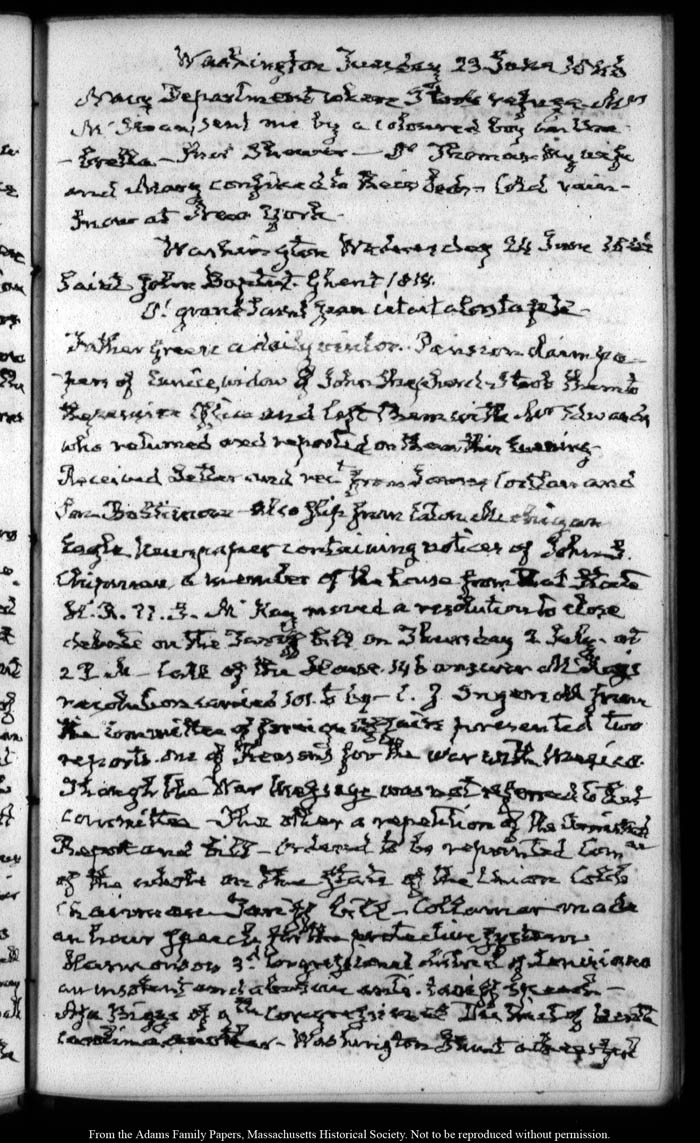 Washington Tuesday 23 June 1846
Navy Department where I took refuge. Mrs
McKean sent me by a coloured boy an Um-
-brella — Shower — Dr Thomas. My wife
and Mary confined to their beds. Cold rain-
Snow at New York.
Washington Wednesday 24 June 1846
Saint John Baptist. Ghent 1814.
O! grand Saint Jean c'etait alors ta fete-
Father Greene a daily visitor. Pension claim pa-
pers of Eunice, widow of John Shepherd. I took them to
the Pension Office and left them with Mr Edwards
who returned and reported on them this Evening.
Received Letter and rect from James and
Son Baltimore also slip from Michigan
Eagle Newspaper containing notices of John S.
Chipman, a member of the house from that State
H.R. U.S. McKay moved a resolution to close
debate on the Tariff bill on Thursday 2 July. at
2 P.M. Call of the House. 146 answer McKay's
resolution carried 101. to C. J. Ingersoll from
the Committee of foreign affairs presented two
reports. one of Reasons for the war with Mexico.
Though the War Message was not referred to that
committee - The other a repetition of the
Report and bill - Ordered to be reprinted Comee
of the whole on the State of the Union Cobb
Chairman Tariff bill - Collamer made
an hour speech for the protective system
Harmanson 3d Congressional district of Louisiana
an instant and anti-tariff speech -
Asa Biggs of 9th Congressional District of North
Carolina another - Washington Hunt
From the Adams Family Papers, Massachusetts Historical Society. Not to be reproduced without permission.